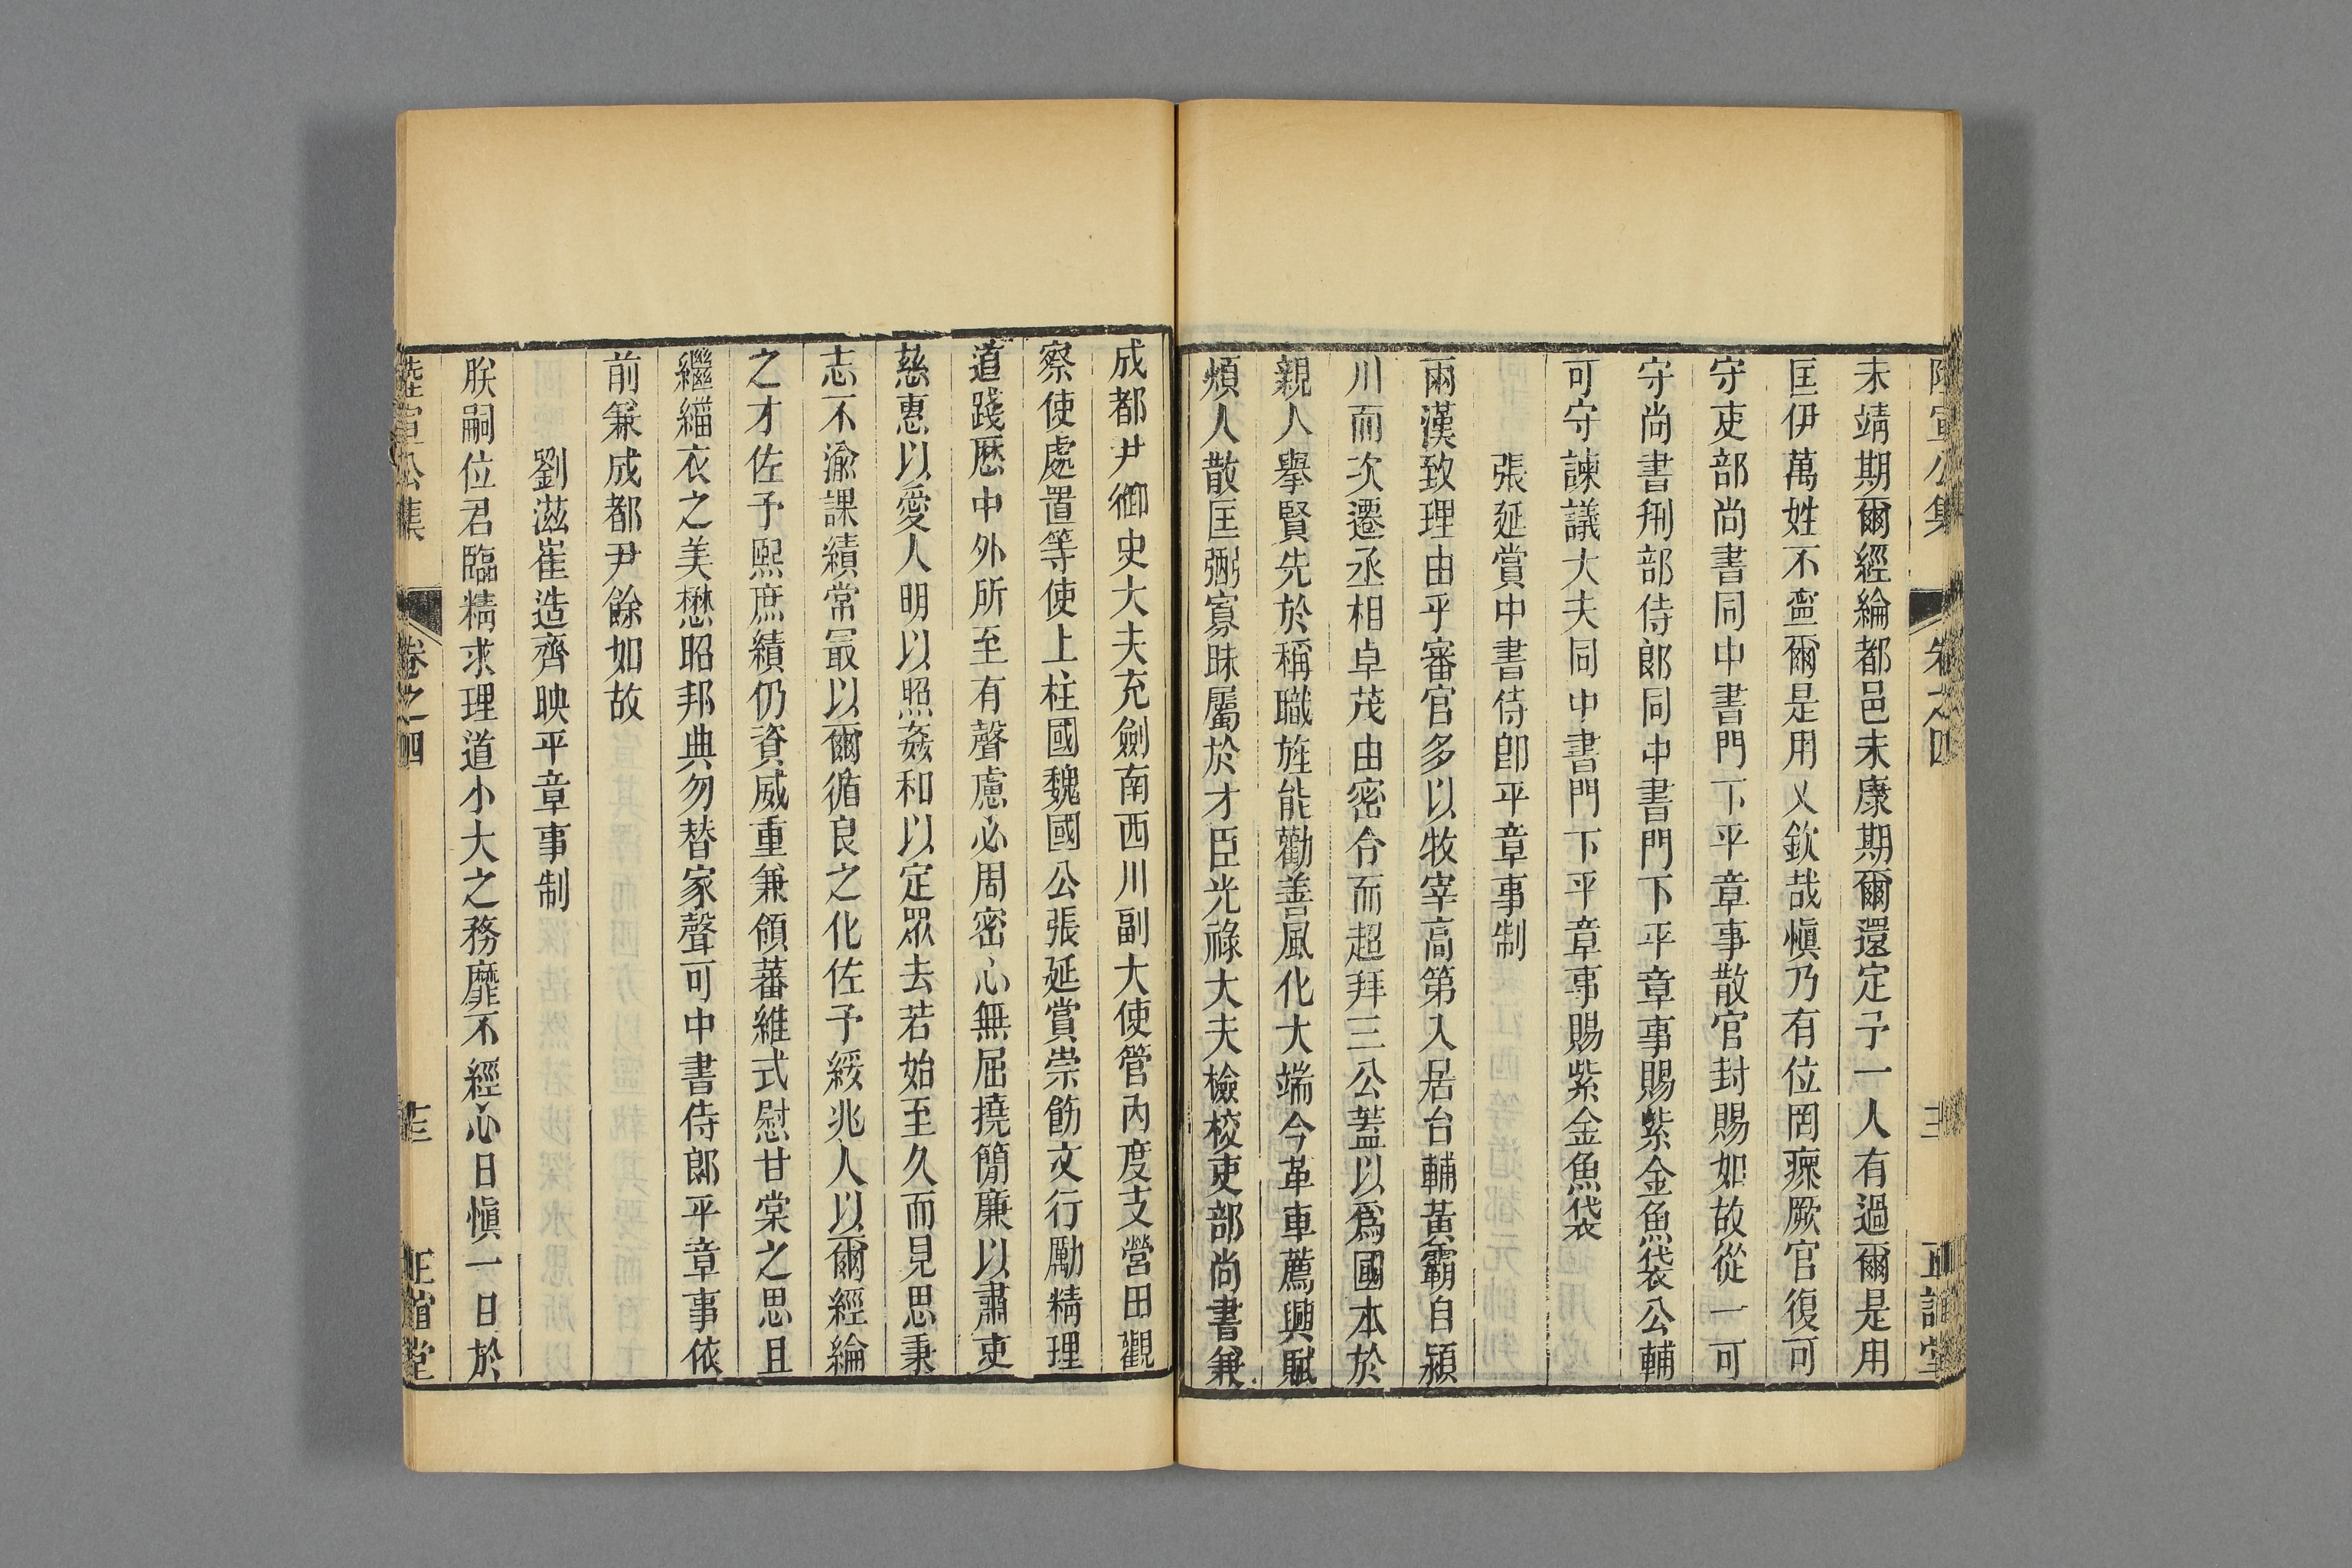 陸宣公集 卷之四 三 正誼堂
未靖期爾經綸都邑未康期爾還定予一人有過爾是用
匡伊萬姓不蠧爾是用乂欽哉愼乃有位罔瘝厥官復可
守吏部尚書同中書門下平章事散官封賜如故從一可
守尚書刑部侍郎同中書門下平章事賜紫金魚袋公輔
可守諫議大夫同中書門下平章事賜紫金魚袋
張延賞中書侍郎平章事制
兩漢致理由乎審官多以牧宰高第入居台輔黃霸自潁
川而次遷丞相卓茂由密令而超拜三公蓋以爲國本於
親人擧賢先於稱職旌能勸善風化大端今革車薦興賦
煩人散匡弼寡昧屬於才臣光祿大夫檢校吏部尚書兼
成都尹御史大夫充劍南西川副大使管內度支營田觀
察使處置等使上柱國魏國公張延賞崇飭文行勵精理
道踐歷中外所至有聲慮必周密心無屈撓簡廉以肅吏
慈惠以愛人明以照姦和以定眾去若始至久而見思秉
志不渝課績常最以爾循良之化佐予綏兆人以爾經綸
之才佐予熙庶績仍資威重兼領蕃維式慰甘棠之思且
繼緇衣之美懋昭邦典勿替家聲可中書侍郎平章事依
前兼成都尹餘如故
劉滋崔造齊映平章事制
朕嗣位君臨精求理道小大之務靡不經心日愼一日於
陸宣公集 卷之四 三 正誼堂